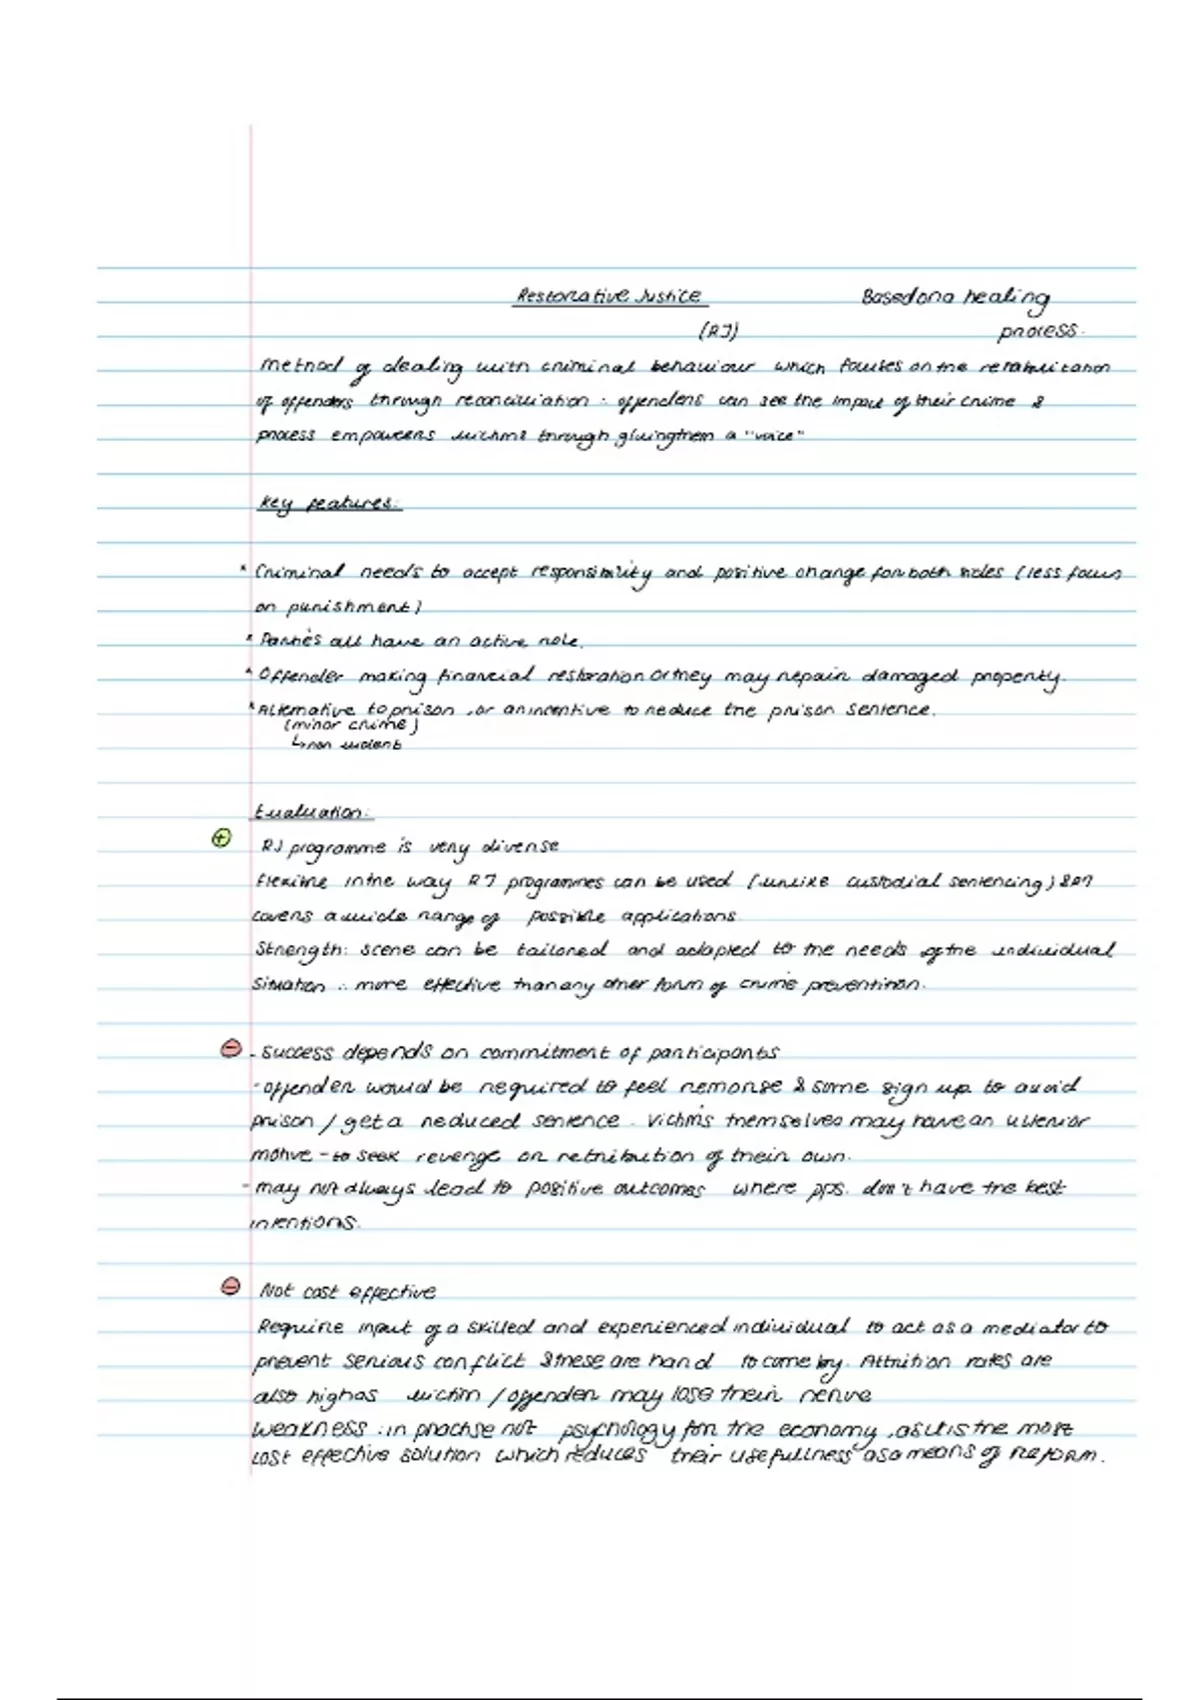 Restorative Justice Based on a healing
(RJ) process.
Method of dealing with criminal behaviour which focuses on the rehabilitation
of offenders through reconciliation ∴ offenders can see the impact of their crime &
process empowers victims through giving them a "voice"
Key features:
* Criminal needs to accept responsibility and positive change for both sides (less focus
on punishment)
* Parties all have an active role.
* Offender making financial restoration or they may repair damaged property.
* Alternative to prison, or an incentive to reduce the prison sentence.
(minor crime)
↳ non violent
Evaluation:
⊕ RJ programme is very diverse
Flexible in the way RJ programmes can be used (unlike custodial sentencing) &
covers a wide range of possible applications
Strength: scene can be tailored and adapted to the needs of the individual
situation ∴ more effective than any other form of crime prevention.
⊖ - Success depends on commitment of participants
- offender would be required to feel remorse & some sign up to avoid
prison / get a reduced sentence. Victims themselves may have an ulterior
motive - to seek revenge or retribution of their own.
- may not always lead to positive outcomes where pps. don't have the best
intentions.
⊖ Not cost effective
Require input of a skilled and experienced individual to act as a mediator to
prevent serious conflict & these are hard to come by. Attrition rates are
also high as victim / offender may lose their nerve
Weakness: in practise not psychology for the economy, as it is the most
cost effective solution which reduces their usefullness as a means of reform.